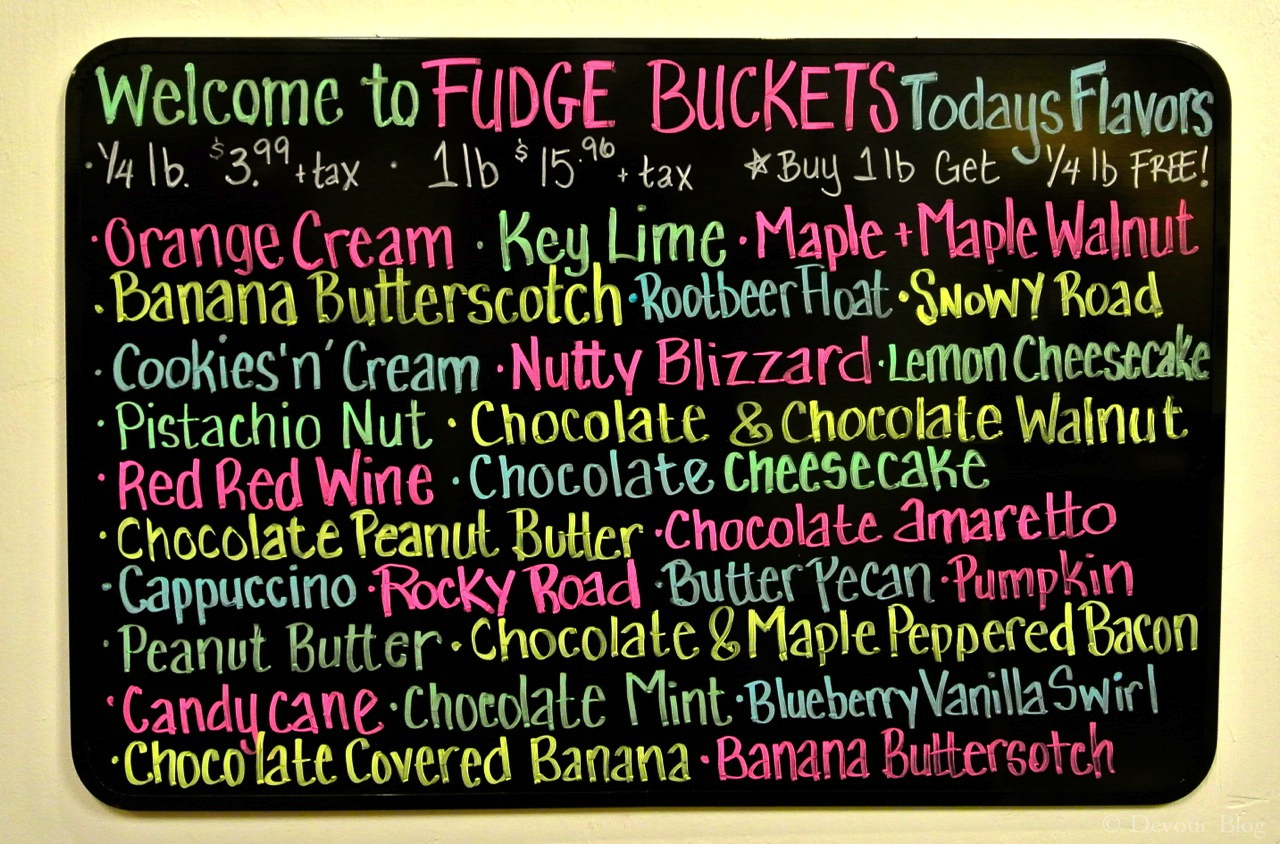 Welcome to FUDGE BUCKETS Todays Flavors
· 1/4 lb. $3.99 + tax · 1lb $15.96 + tax ☆Buy 1lb Get 1/4 lb FREE!
· Orange Cream · Key Lime · Maple + Maple Walnut
· Banana Butterscotch · Rootbeer Float · SNOWY Road
· Cookies 'n' Cream · Nutty Blizzard · Lemon Cheesecake
· Pistachio Nut · Chocolate & Chocolate Walnut
· Red Red Wine · Chocolate Cheesecake
· Chocolate Peanut Butter · Chocolate amaretto
· Cappuccino · Rocky Road · Butter Pecan · Pumpkin
· Peanut Butter · Chocolate & Maple Peppered Bacon
· Candy cane · Chocolate Mint · Blueberry Vanilla Swirl
· Chocolate Covered Banana · Banana Buttersotch
© Devour Blog